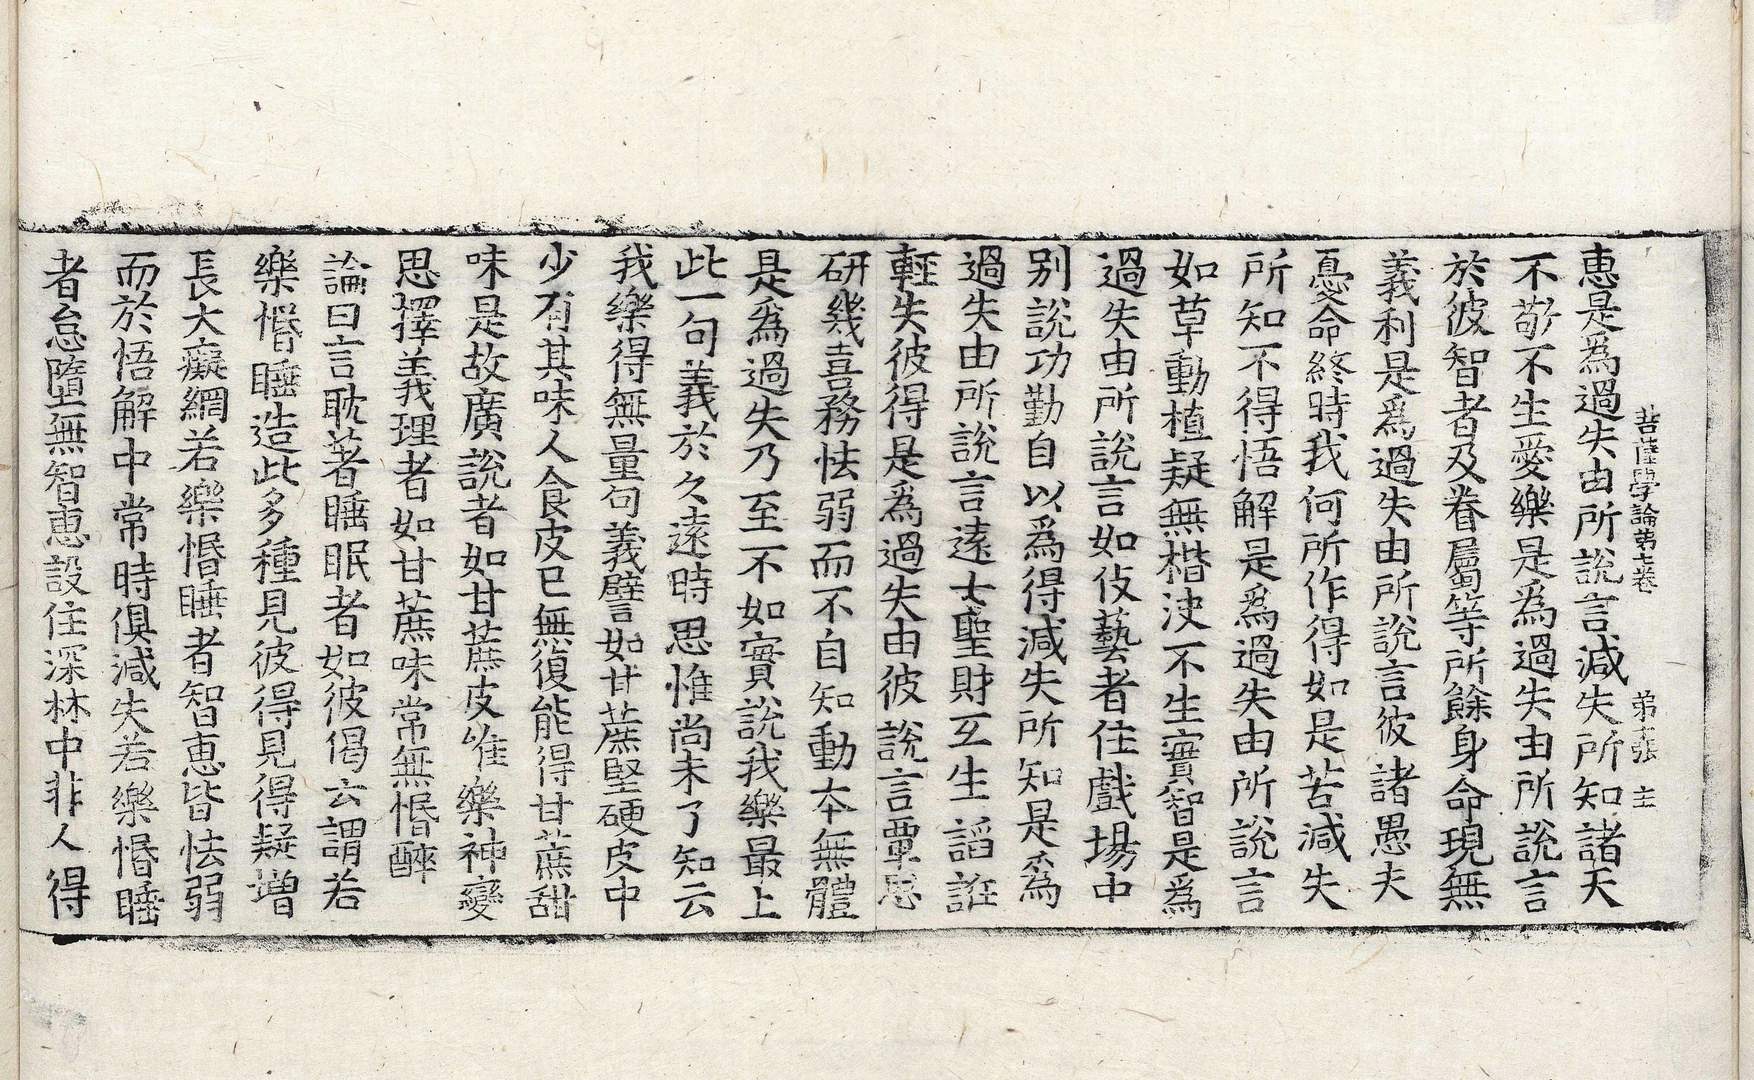 菩薩學論第七卷 第十張 主
惠是為過失由所說言減失所知諸天
不敬不生愛樂是為過失由所說言
於彼智者及眷屬等所餘身命現無
義利是為過失由所說言彼諸愚夫
憂命終時我何所作得如是苦減失
所知不得悟解是為過失由所說言
如草動植疑無楷決不生實智是為
過失由所說言如伎藝者住戲場中
別說功勤自以為得減失所知是為
過失由所說言遠七聖財互生謟誑
輕失彼得是為過失由彼說言覃思
研幾喜務怯弱而不自知動夲無體
是為過失乃至不如實說我樂最上
此一句義於久遠時思惟尚未了知云
我樂得無量句義譬如甘蔗堅硬皮中
少有其味人食皮已無復能得甘蔗甜
味是故廣說者如甘蔗皮唯樂神變
思擇義理者如甘蔗味常無惛醉
論曰言耽著睡眠者如彼偈云謂若
樂惛睡造此多種見彼得見得疑增
長大癡網若樂惛睡者智惠皆怯弱
而於悟解中常時俱減失若樂惛睡
者怠墮無智惠設住深林中非人得